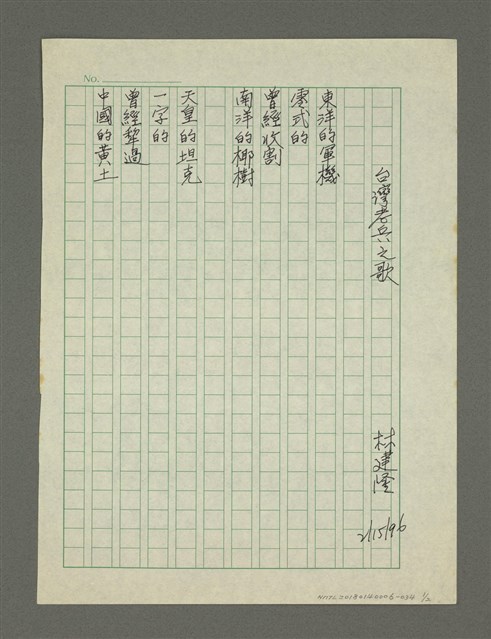 No.
台灣老兵之歌
林建隆
2/15/96
東洋的軍機
零式的
曾經收割
南洋的椰樹
天皇的坦克
一字的
曾經犁過
中國的黃土
NMTL20180140006-034 1/2